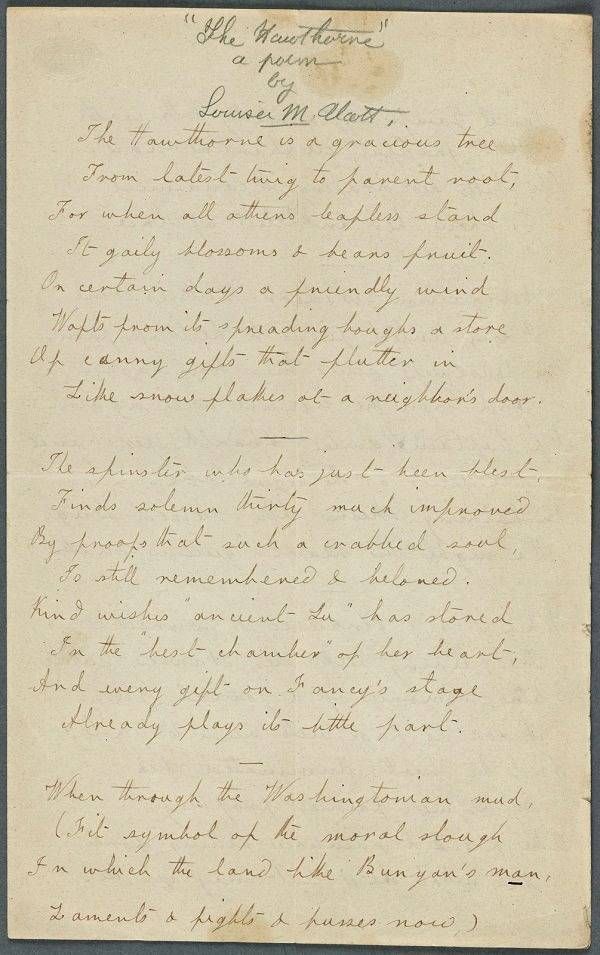 "The Hawthorne"
a poem
by
Louisa M. Alcott.
The Hawthorne is a gracious tree
From latest twig to parent root,
For when all others leafless stand
It gaily blossoms & bears fruit.
On certain days a friendly wind
Wafts from its spreading boughs a store
Of canny gifts that flutter in
Like snow flakes at a neighbor's door.
The spinster who has just been blest,
Finds solemn thirty much improved
By proofs that such a crabbed soul,
Is still remembered & beloved.
Kind wishes "ancient Lu" has stored
In the "best chamber" of her heart,
And every gift on Fancy's stage
Already plays its little part.
When through the Washingtonian mud,
(Fit symbol of the moral slough
In which the land like Bunyan's man,
Laments & fights & fusses now,)